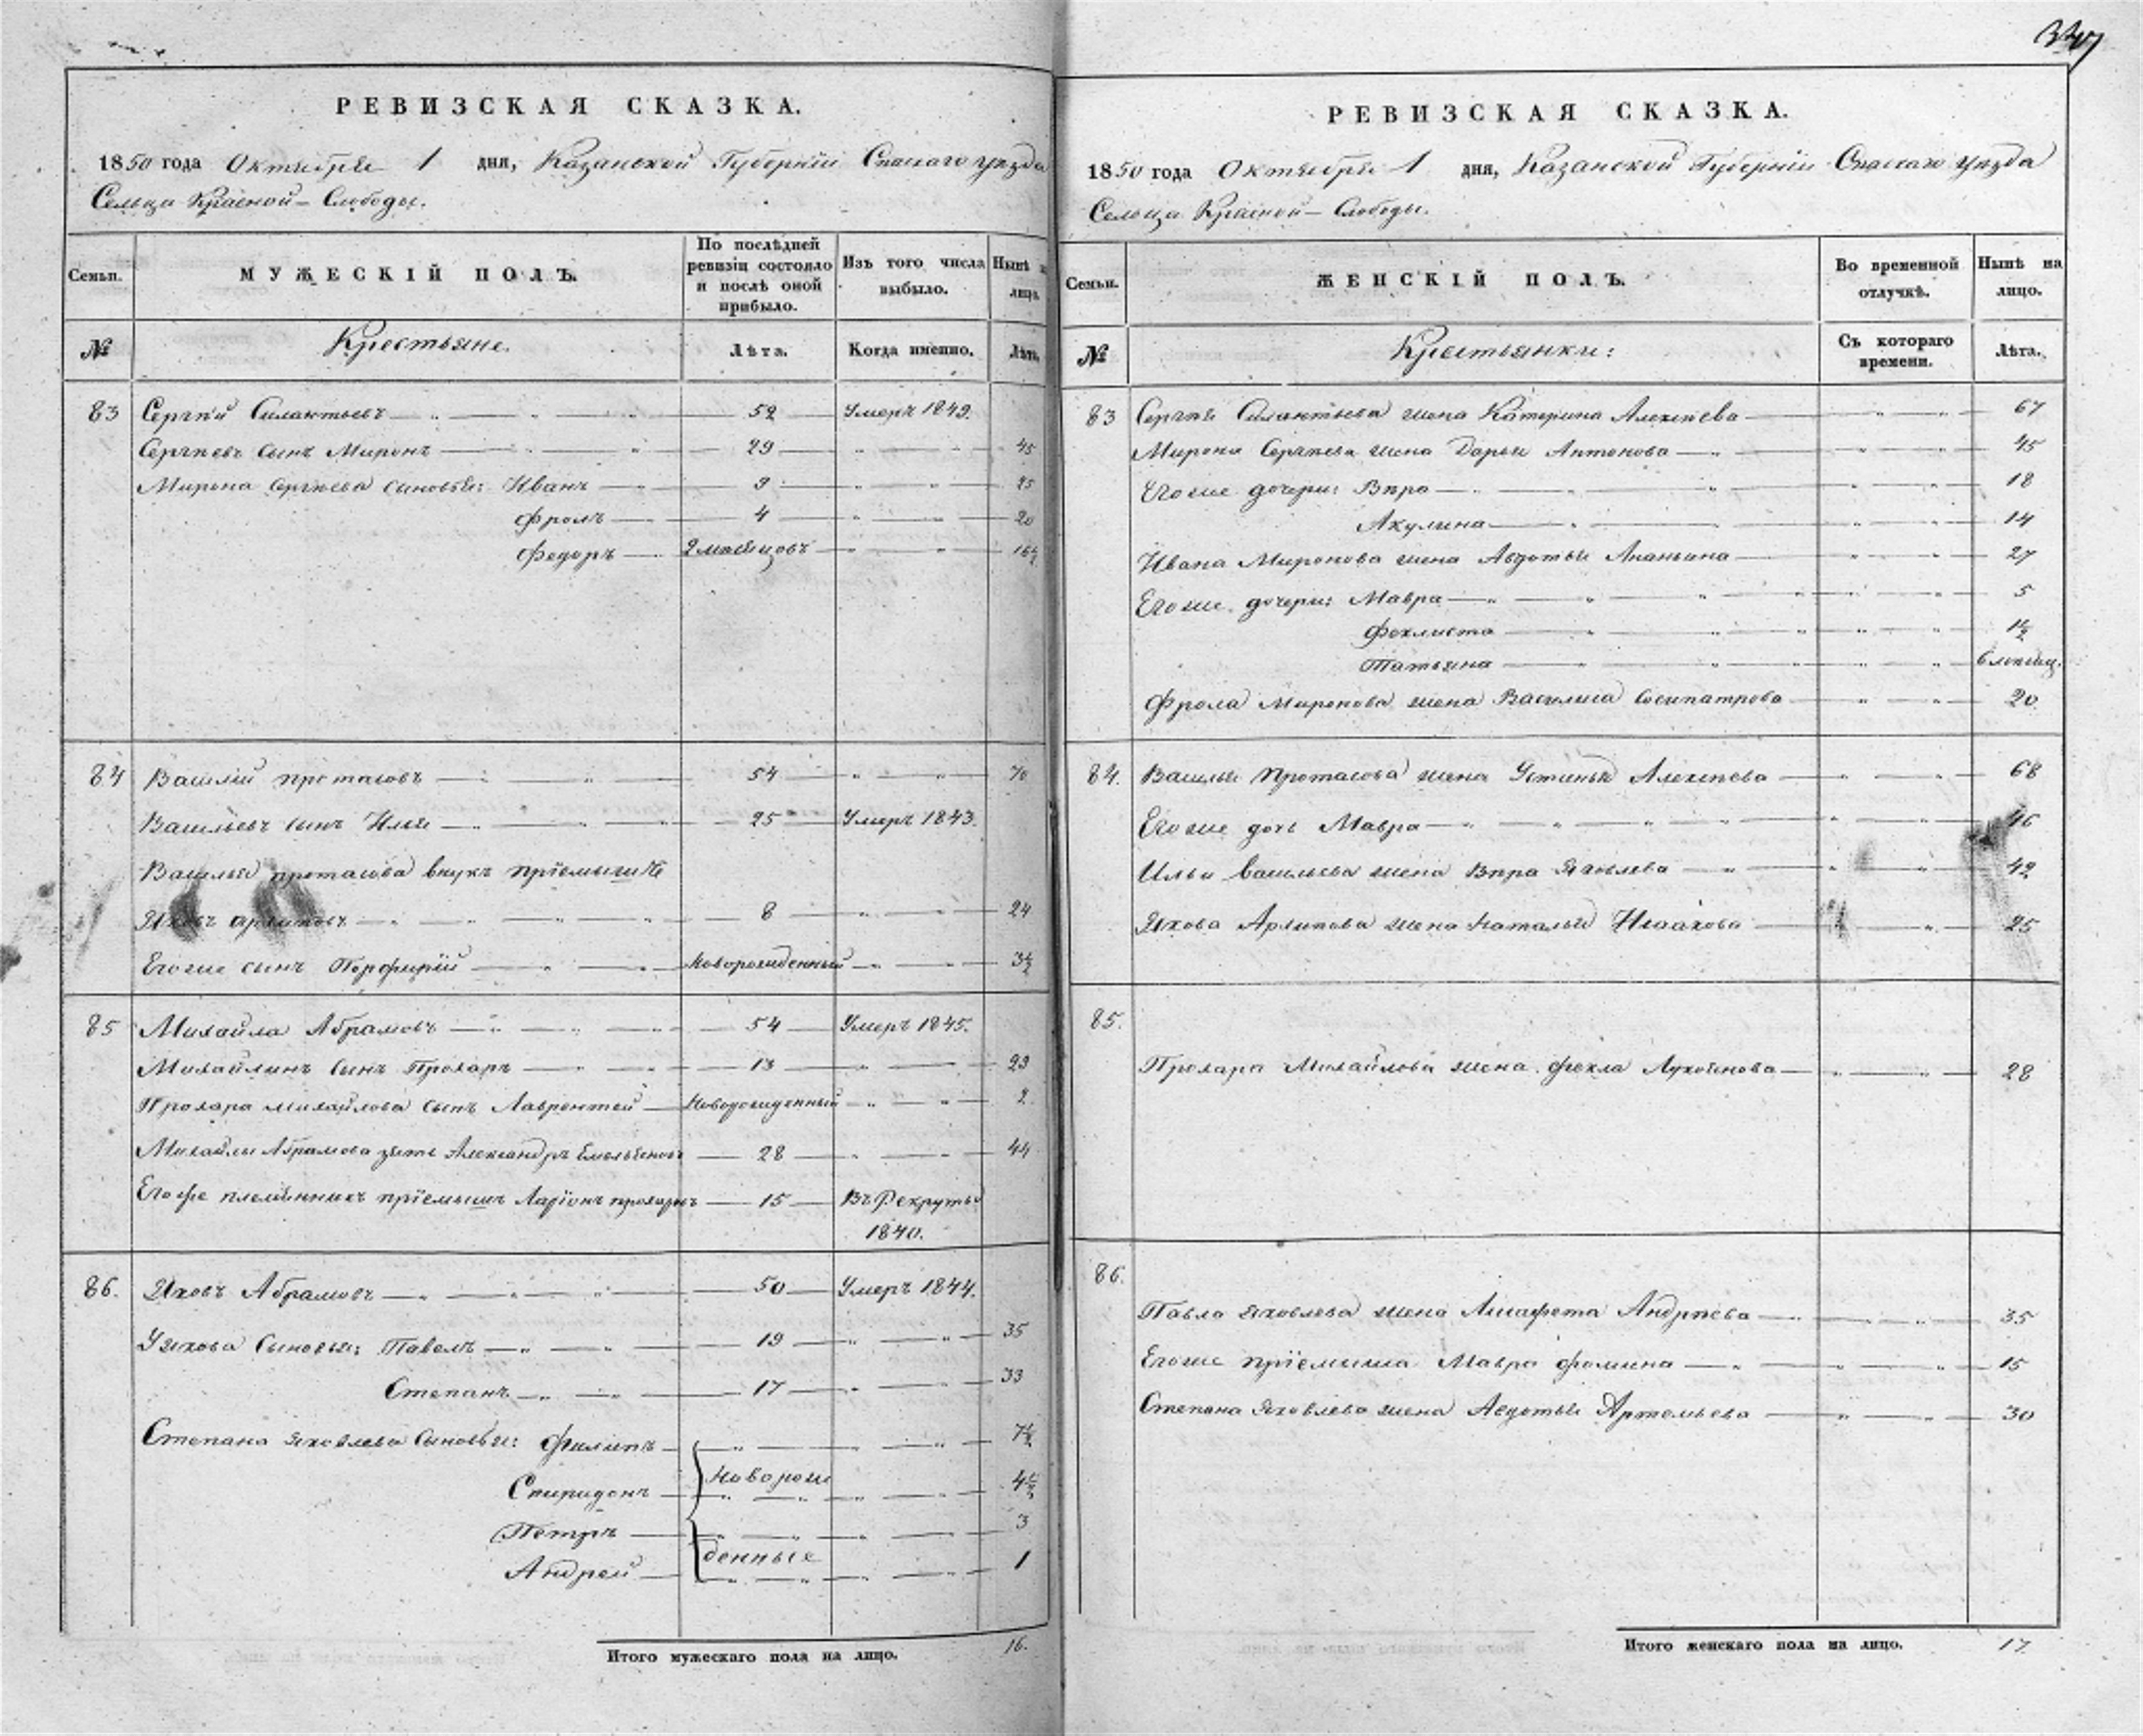 347
РЕВИЗСКАЯ СКАЗКА.
1850 года Октября 1 дня, Казанской Губерніи Спаскаго уѣзда
Сельца Красной-Слободы.
Семьи.
МУЖЕСКІЙ ПОЛЪ.
По послѣдней ревизіи состояло и послѣ оной прибыло.
Изъ того числа выбыло.
Нынѣ на лицо.
№
Крестьяне.
Лѣта.
Когда именно.
Лѣта.
83 Сергѣй Силантьевъ 52 Умеръ 1849.
Сергѣевъ сынъ Миронъ 29 45
Мирона Сергѣева сыновья: Иванъ 9 25
Фролъ 4 20
Федоръ 2 мѣсяцовъ 16½
84 Василій Протасовъ 54 70
Васильевъ сынъ Илья 25 Умеръ 1843.
Василья Протасова внукъ пріемышъ
Яковъ Архиповъ 8 24
Его же сынъ Порфирій Новорожденный 3½
85 Михайла Абрамовъ 54 Умеръ 1845.
Михайлинъ сынъ Прохаръ 13 29
Прохара Михайлова сынъ Лаврентей Новорожденный 2
Михайлы Абрамова зять Александръ Емельяновъ 28 44
Его же племянникъ пріемышъ Ларіонъ Прохаровъ 15 Въ Рекруты
1840.
86. Яковъ Абрамовъ 50 Умеръ 1844.
Якова сыновья: Павелъ 19 35
Степанъ 17 33
Степана Яковлева сыновья: Филипъ 7½
Спиридонъ Новорож 4½
Петръ 3
Андрей денные 1
Итого мужескаго пола на лицо. 16.
РЕВИЗСКАЯ СКАЗКА.
1850 года Октября 1 дня, Казанской Губерніи Спаскаго уѣзда
Сельца Красной-Слободы.
Семьи.
ЖЕНСКІЙ ПОЛЪ.
Во временной отлучкѣ.
Нынѣ на лицо.
№
Крестьянки:
Съ котораго времени.
Лѣта.
83 Сергѣя Силантьева жена Катерина Алексѣева 67
Мирона Сергѣева жена Дарья Антонова 45
Его же дочери: Вѣра 18
Акулина 14
Ивана Миронова жена Авдотья Ананьина 27
Его же дочери: Мавра 5
Феклиста 1½
Татьяна 6 мѣсяц.
Фрола Миронова жена Василиса Сосипатрова 20
84. Василья Протасова жена Устинья Алексѣева 68
Его же дочь Мавра 46
Ильи Васильева жена Вѣра Яковлева 42
Якова Архипова жена Наталья Исаакова 25
85.
Прохара Михайлова жена Фекла Лукоянова 28
86.
Павла Яковлева жена Лисафета Андрѣева 35
Его же пріемыша Мавра Фомина 15
Степана Яковлева жена Авдотья Артемьева 30
Итого женскаго пола на лицо. 17